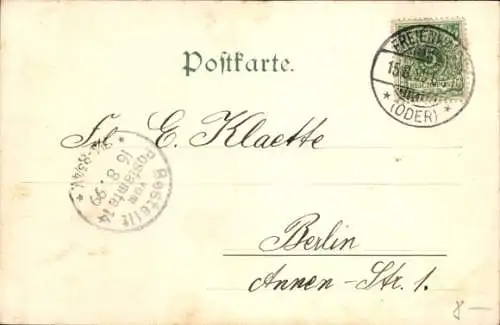 Postkarte.
FREIENWALDE
15.8.99
* (ODER) *
5
Frl. E. Klaette
Bestellt
vom
Postamte 14
16.8.99
Berlin
Annen-Str. 1.
8 —